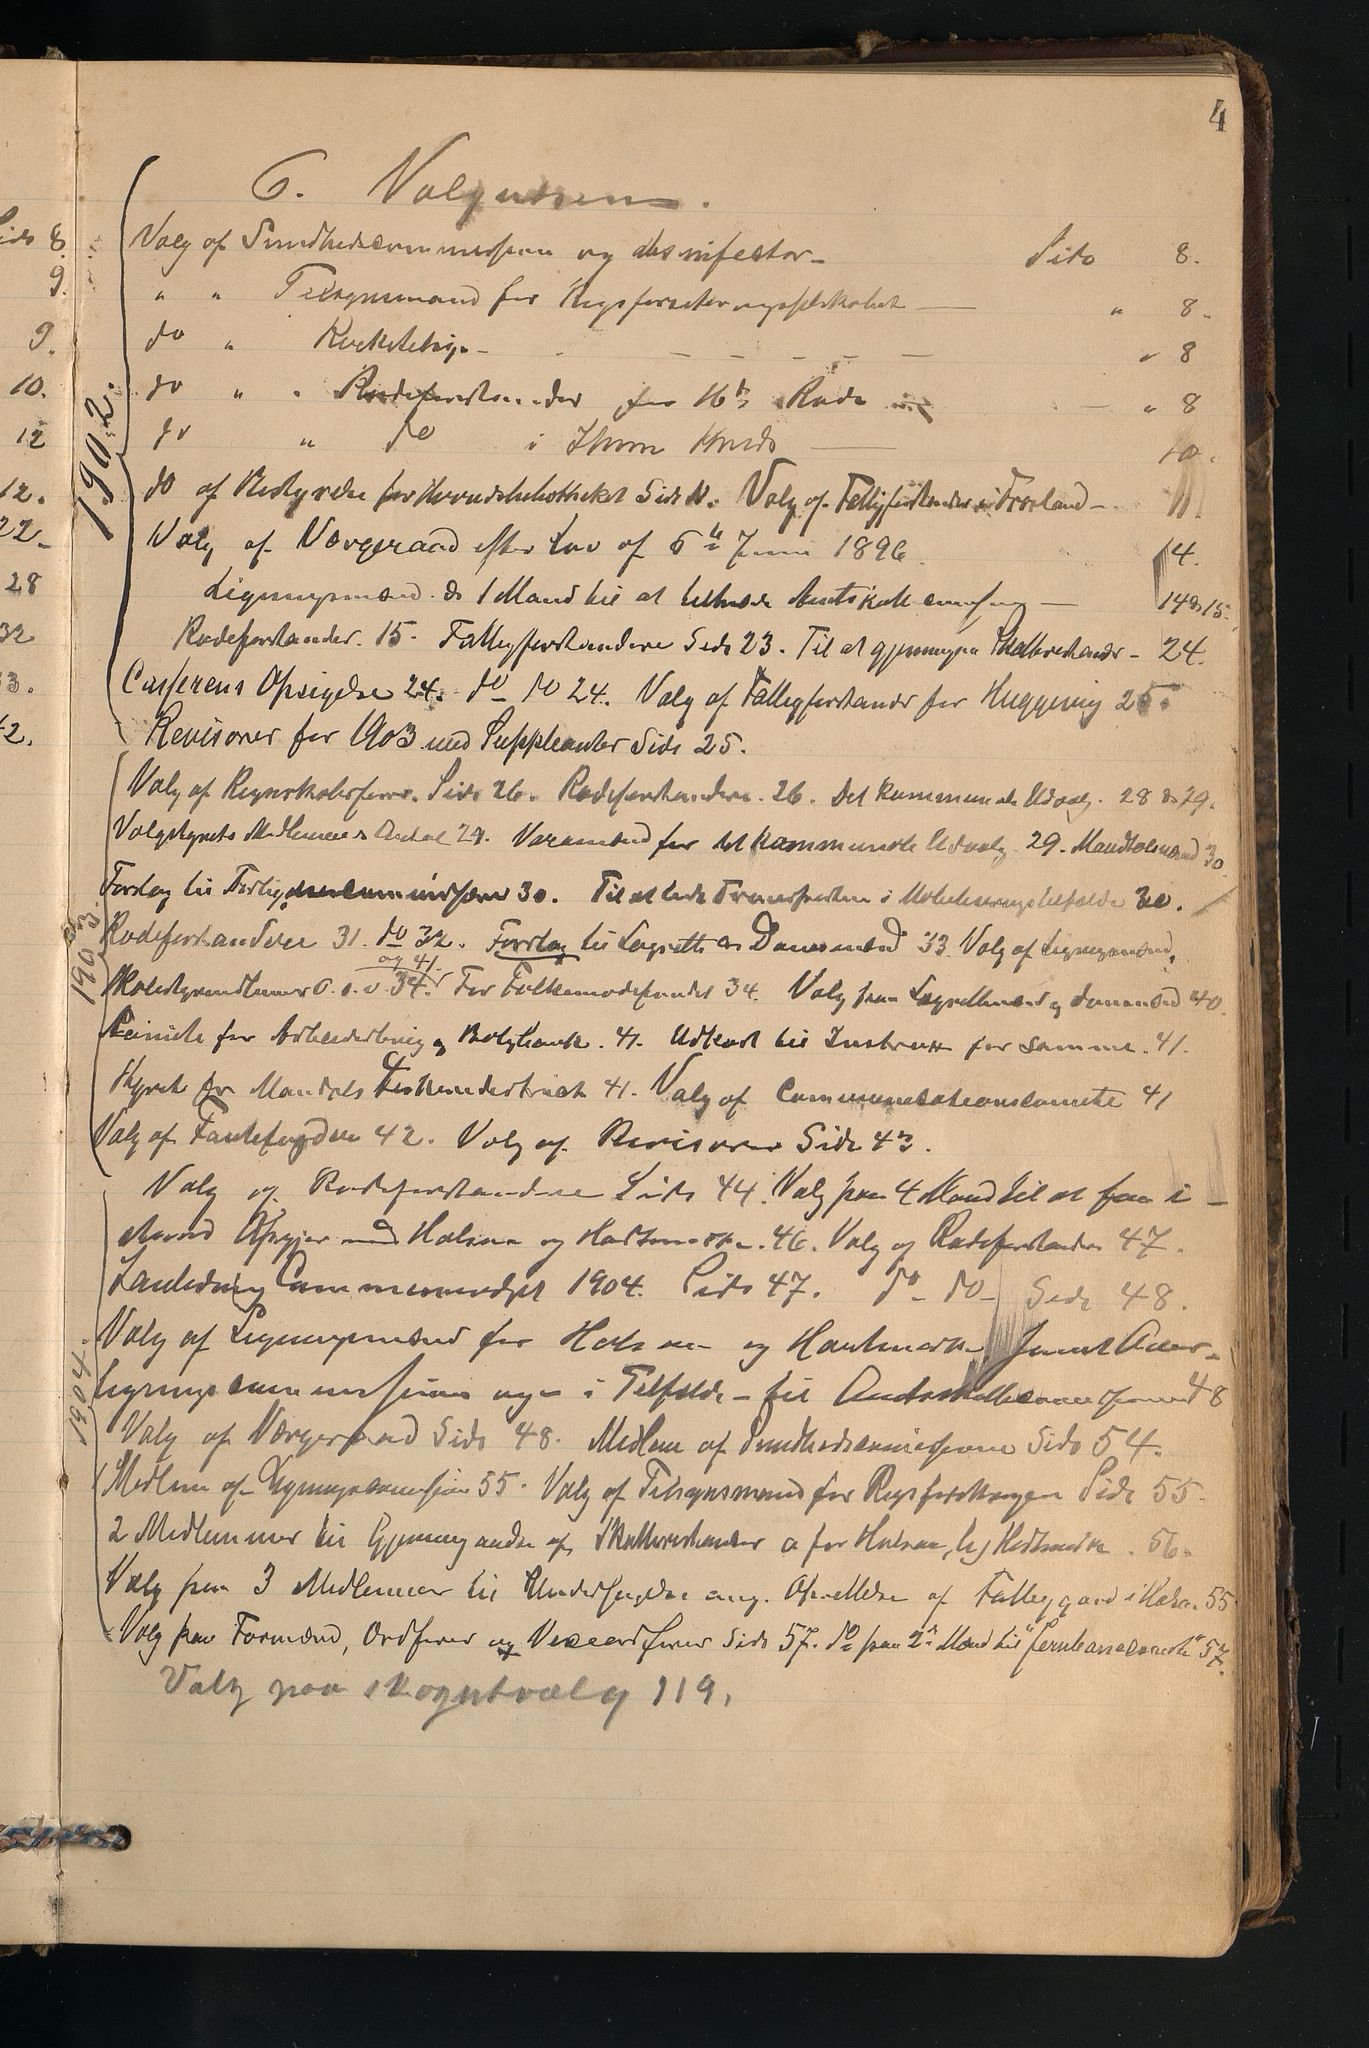 4
6. Valgvæsen.
Valg af Sundhedscommission og desinfector - Side 8.
" " Tilsynsmand for - " 8.
do " - " 8
do " " Rodeforstander for 16de Rode - " 8
do " do i 10.
do af Bestyrelse for Side 11. Valg af Fattigforstander i - 11.
Valg af Værgeraad efter Lov af 6te Juni 1896 14.
Ligningsmænd. & 1 Mand til at tiltræde Amtskattecomm - 14 & 15.
Rodeforstander. 15. Fattigforstandere Side 23. Til at gjennemgaa Skatterestancer - 24.
Casserens Opsigelse 24. do do 24. Valg af Fattigforstander for 25.
Revisorer for 1903 med Suppleanter Side 25.
1902.
Valg af Regnskabsfører. Side 26. Rodeforstandere. 26. Det kommunale Udvalg. 28 & 29.
Valgstyrets Medlemmers Antal 29. Varamænd for det kommunale Udvalg 29. Mandtalsmænd 30.
Forslag til 30. Til at lede Transporten i Mobiliseringstilfælde 30.
Rodeforstandere 31. do 32. Forslag til Lagrette og Domsmænd 33. Valg af Ligningsmænd,
og 41.
o. s. v. 34. For Folkemødefondet 34. Valg paa Lagrettemænd og Domsmænd 40.
Komite for og . 41. Udkast til Instrux for samme. 41.
Styret for Mandals 41. Valg af Communicationscomite 41
Valg af Fantefogder 42. Valg af Revisorer Side 43.
1903.
Valg af Rodeforstandere Side 44. Valg paa 4 Mand til at faa i -
stand med Halsaa og Hartmark. 46. Valg af Rodeforstander 47.
1904. Side 47. do - do - Side 48.
Valg af Ligningsmænd for Halsaa og Hartmark samt Over-
ligningscommission og i Tilfælde - til Amtsskattecommission 48
Valg af Værgeraad Side 48. Medlem af Sundhedscommissionen Side 54.
Medlem af Ligningscommission 55. Valg af Tilsynsmand for Side 55.
2 Medlemmer til Gjennemgaaelse af Skatterestancer a for Halsaa, b, Hartmark. 56.
Valg paa 3 Medlemmer til Undersøgelse ang. Oprettelse af Fattiggaard i Halsaa 55
Valg paa Formænd, Ordfører og Viceordfører Side 57. do paa 2de Mænd til "Jernbanecomite" 57.
1904.
Valg paa skogutvalg 119.
Side 8.
9.
9.
10.
12
12.
22.
28
32
33.
42.